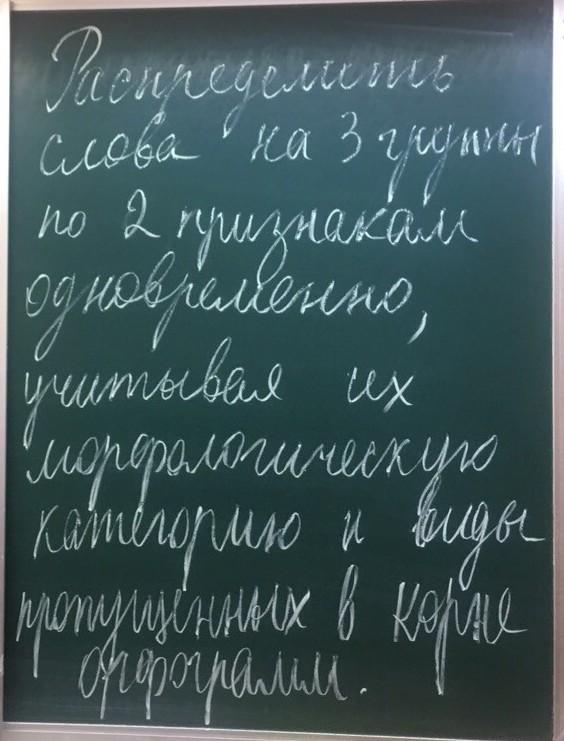 Распределить
слова на 3 группы
по 2 признакам
одновременно,
учитывая их
морфологическую
категорию и виды
пропущенных в корне
орфограмм.